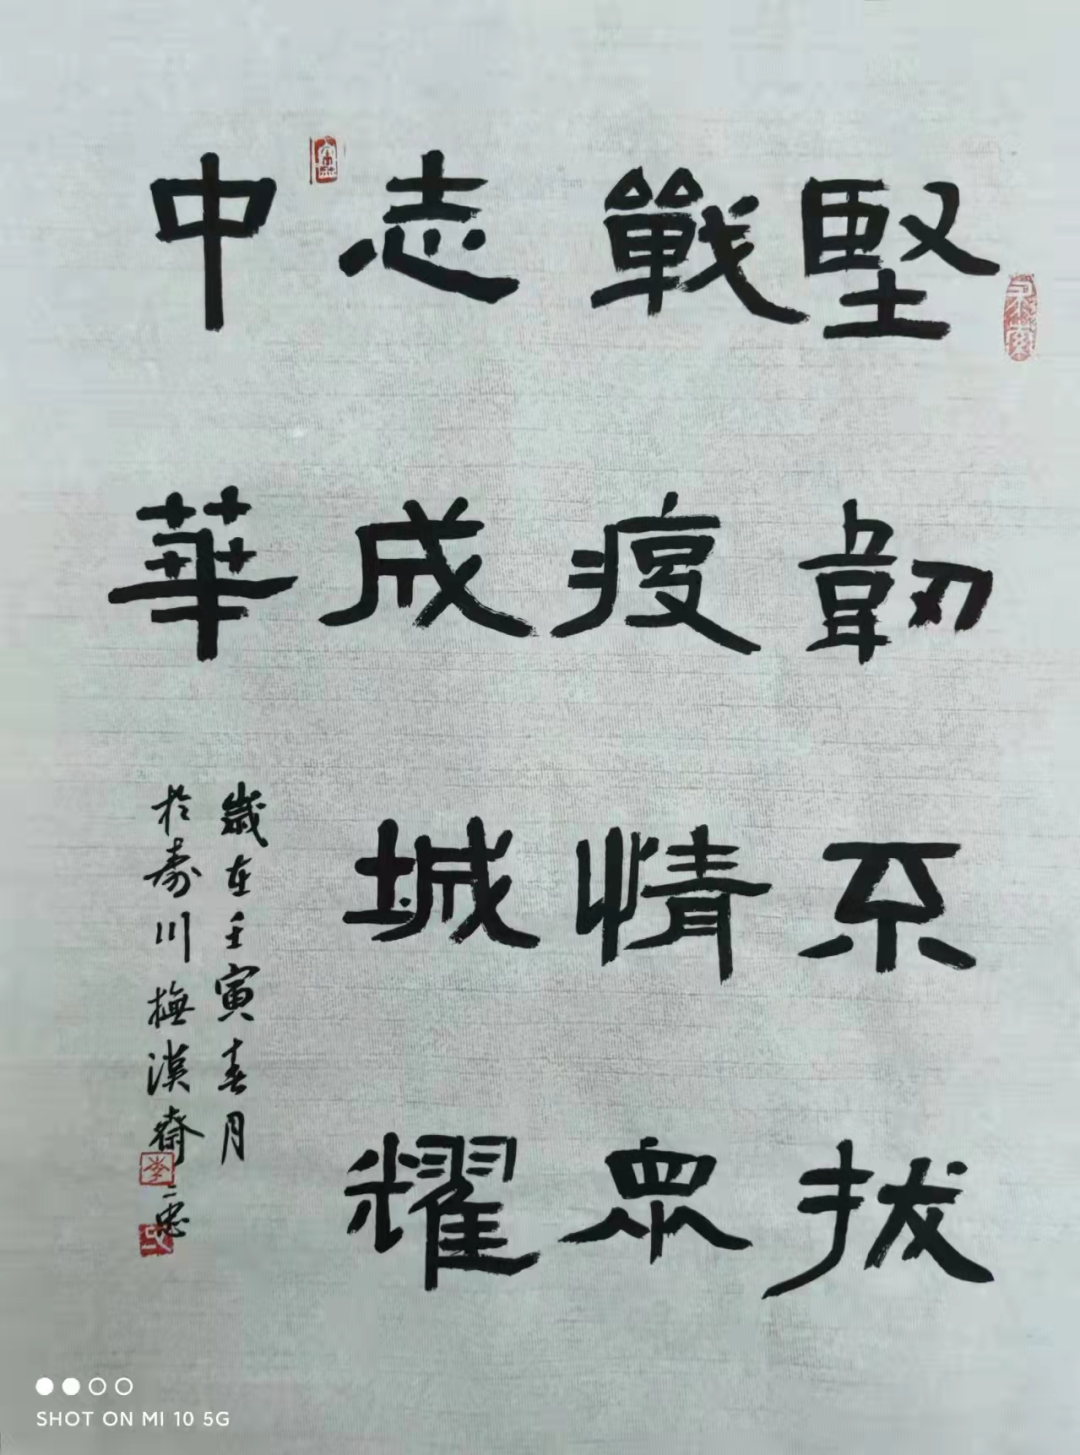 堅韌不拔
戰疫情眾
志成城耀
中華
歲在壬寅春月
於壽川撫漢齋
SHOT ON MI 10 5G